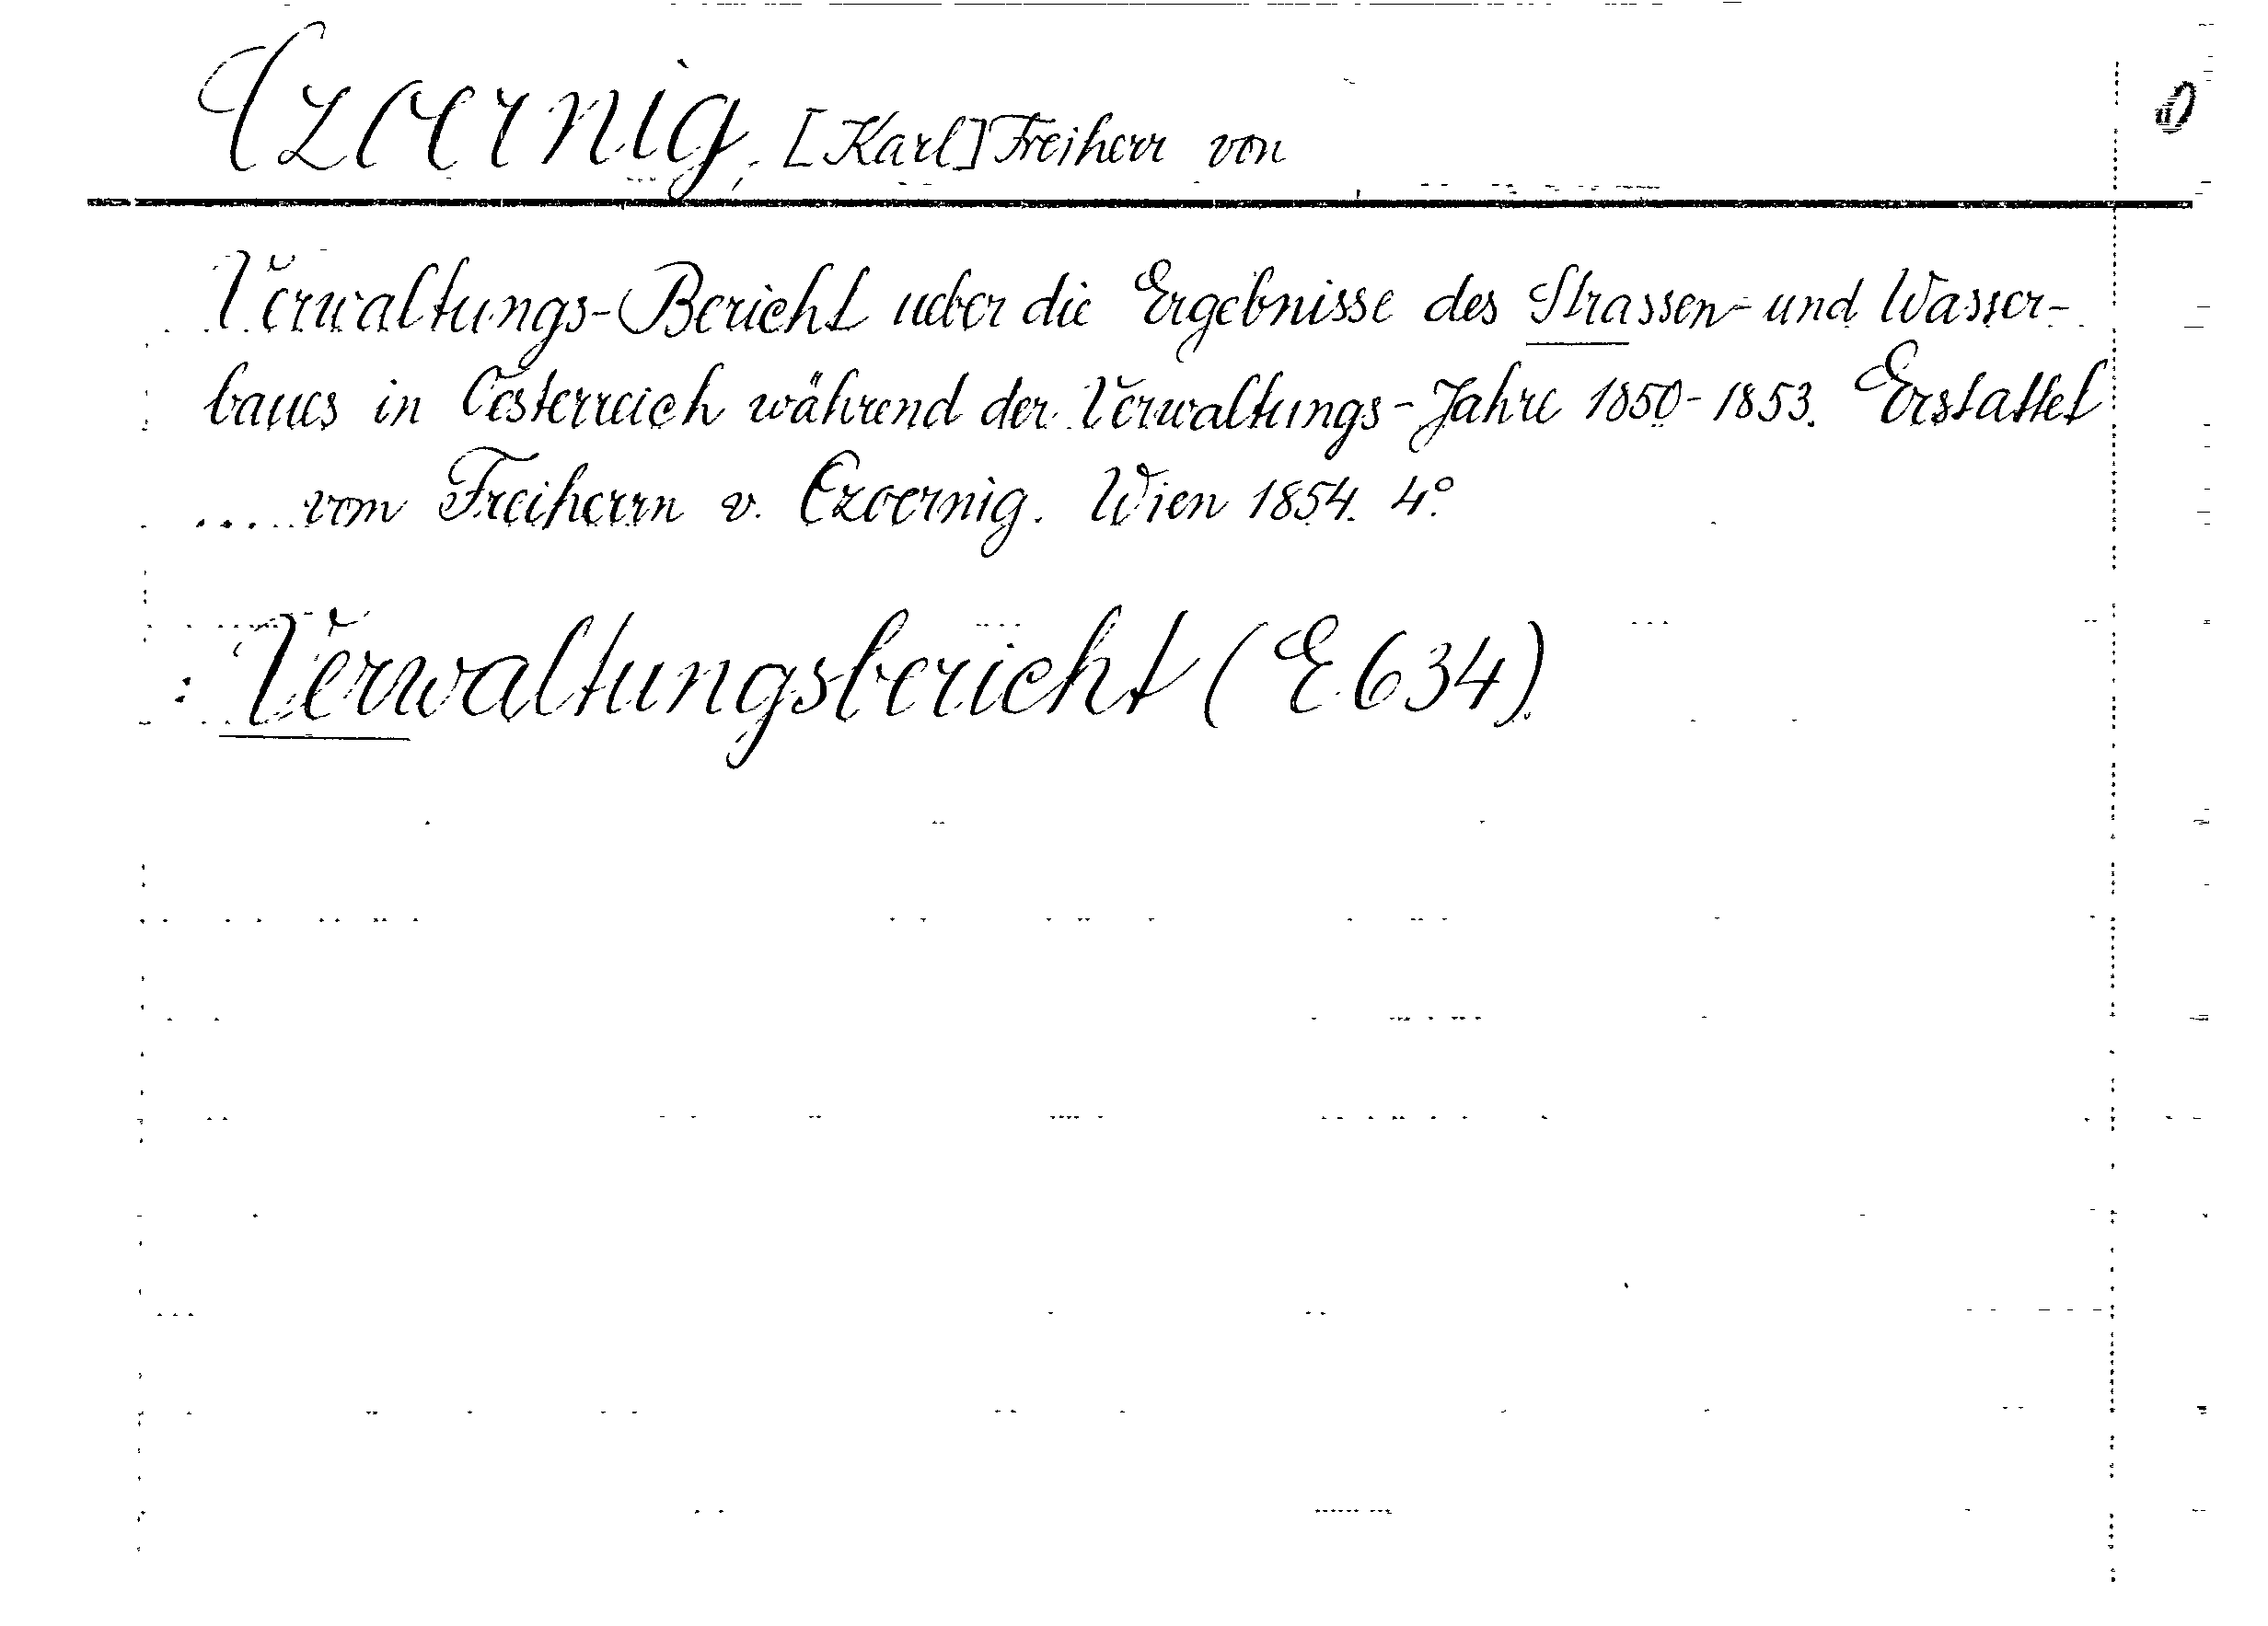 Czoernig, [Karl] Freiherr von
Verwaltungs-Bericht ueber die Ergebnisse des Strassen- und Wasser-
baues in Oesterreich während der Verwaltungs-Jahre 1850-1853. Erstattet
.... vom Freiherrn v. Czoernig. Wien 1854. 4°
: Verwaltungsbericht (E.634).